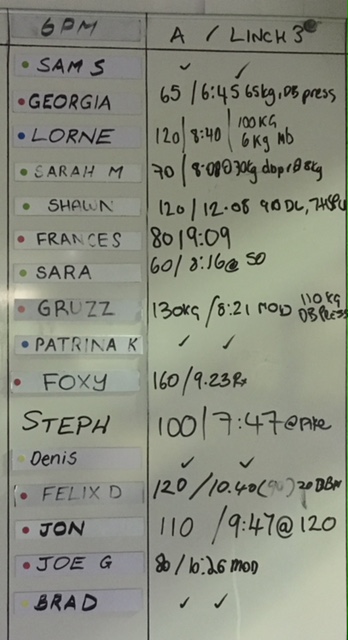 6PM A / LINCH 3
SAM S ✓ ✓
GEORGIA 65 / 6:45 65kg, DB press
LORNE 120 / 8:40 / 100KG
6kg
SARAH M 70 / 8:08 @ 30kg
SHAWN 120 / 12.08 90 DL,
FRANCES 80 / 9:09
SARA 60 / 8:16 @ 50
GRUZZ 130kg / 8:21 MOD 110 kg
DB PRESS
PATRINA K ✓ ✓
FOXY 160 / 9.23 Rx
STEPH 100 / 7:47 @
Denis ✓ ✓
FELIX D 120 / 10.40 (90) 20
JON 110 / 9:47 @ 120
JOE G 80 / 10:26 MOD
BRAD ✓ ✓